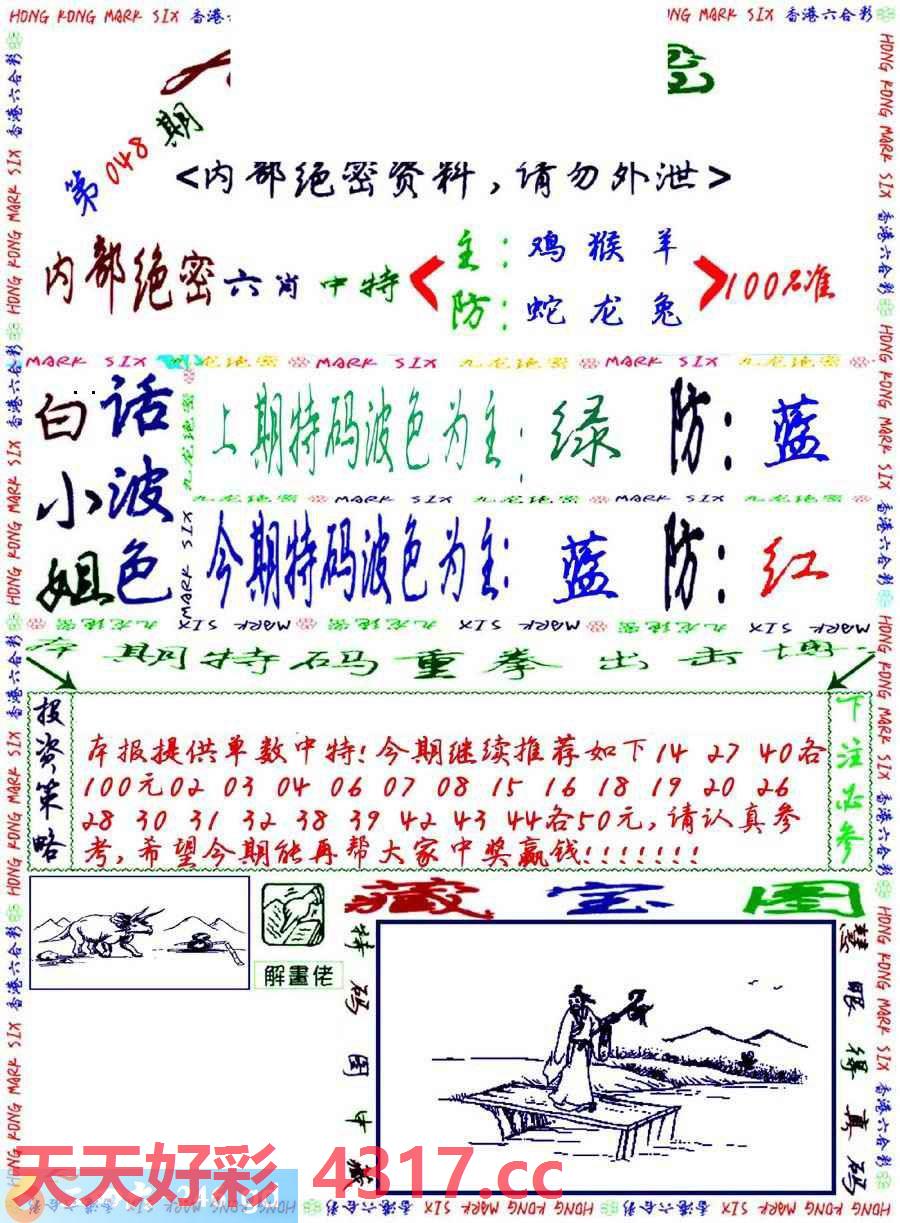 HONG KONG MARK SIX 香港
NG MARK SIX 香港六合彩
第048期
<内部绝密资料,请勿外泄>
内部绝密六肖中特
主:鸡猴羊
防:蛇龙兔
100%准
MARK SIX 九龙绝密 MARK SIX 九龙绝密 MARK SIX 九龙绝密
白小姐
话波色
上期特码波色为主:绿 防:蓝
九龙绝密 MARK SIX 九龙绝密 MARK SIX 九龙绝密
今期特码波色为主:蓝 防:红
九龙绝密 MARK SIX 九龙绝密 MARK SIX 九龙绝密 MARK SIX
本期特码重拳出击
投资策略
本报提供单数中特!今期继续推荐如下14 27 40各
100元02 03 04 06 07 08 15 16 18 19 20 26
28 30 31 32 38 39 42 43 44各50元,请认真参
考,希望今期能再帮大家中奖赢钱!!!!!!!
下注必参
藏宝图
解畫佬
特码图中
慧眼得真码
天天好彩 4317.cc
HONG KONG MARK SIX 香港六合彩